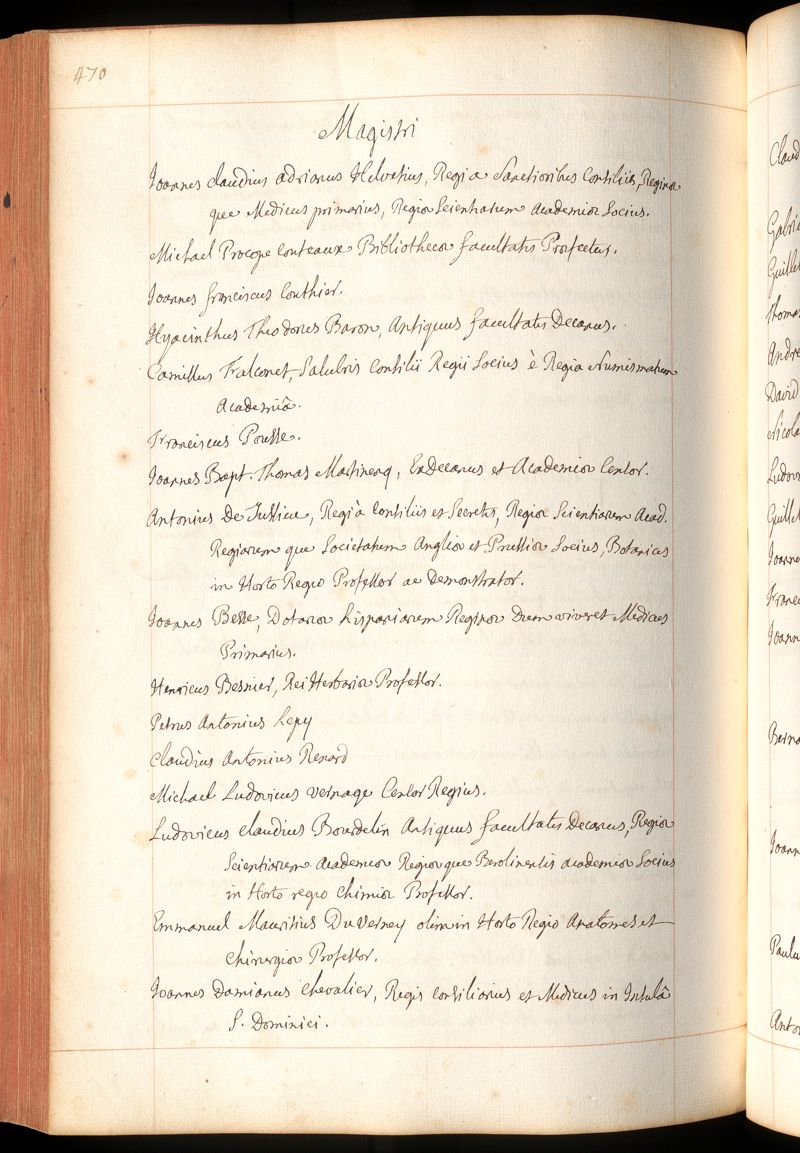 470
Magistri
Joannes claudius adrianus Helvetius, Regi a Sanctioribus Consiliis, Reginæ
que Medicus primarius, Regiæ Scientiarum Academiæ Socius.
Michael Procope Couteaux Bibliothecæ facultatis Præfectus.
Joannes franciscus Couthier.
Hyacinthus Theodorus Baron, Antiquus facultatis Decanus.
Camillus Falconet, Salubris Consilii Regii Socius è Regia Numismatum
Academiâ.
Franciscus Pousse.
Joannes Bapt. Thomas Martinenq, Exdecanus et Academiæ Censor.
Antonius De Jussieu, Regi à Consiliis et Secretis, Regiæ Scientiarum Acad.
Regiarum que Societatum Angliæ et Prussiæ Socius, Botanices
in Horto Regio Professor ac Demonstrator.
Joannes Besse, Dotariæ hispaniarum Reginæ Dum viveret Medicus
Primarius.
Henricus Besnier, Rei Herbariæ Professor.
Petrus Antonius Lepy
Claudius Antonius Renard
Michael Ludovicus Vernage Censor Regius.
Ludovicus claudius Bourdelin Antiquus facultatis Decanus, Regiæ
Scientiarum Academiæ Regiæque Berolinensis academiæ Socius
in Horto regio Chimiæ Professor.
Emmanuel Mauritius Du Verney olim in Horto Regio Anatomes et
Chirurgiæ Professor.
Joannes Damianus Chevalier, Regis Consiliarius et Medicus in Insulâ
S. Dominici.
Claud
Gabrie
Guillel
Thomas
Andre
David
Nicola
Ludov
Guillel
Joanne
Franc
Joann
Berna
Joann
Paulu
Anto